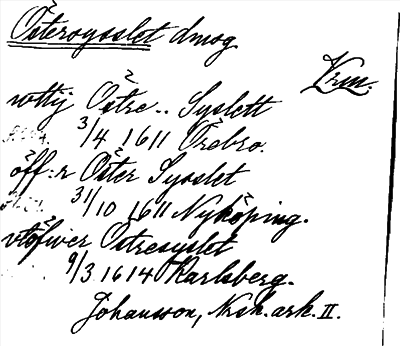 Östersysslet dmog
Vrm.
vttij Östre.. Syslett
3/4 1611 Örebro.
öff:r Öster Sysslet
31/10 1611 Nyköping.
vtöfwer Östresyslet
9/3 1614 Karlsberg.
Johansson, Nrsk. ark. II.